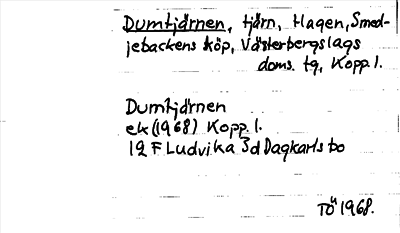 Dumtjärnen, tjärn, Hagen, Smed-
jebackens köp, Västerbergslags
doms. tg, Kopp. l.
Dumtjärnen
ek (1968) Kopp. l.
12 F Ludvika 3d Dagkarlsbo
TÖ 1968.